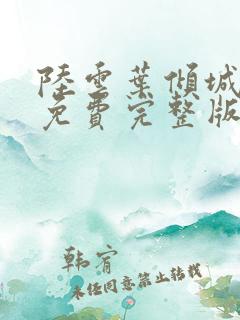 陸雲葉傾城
免費完整版
韩宥
未经同意禁止转载